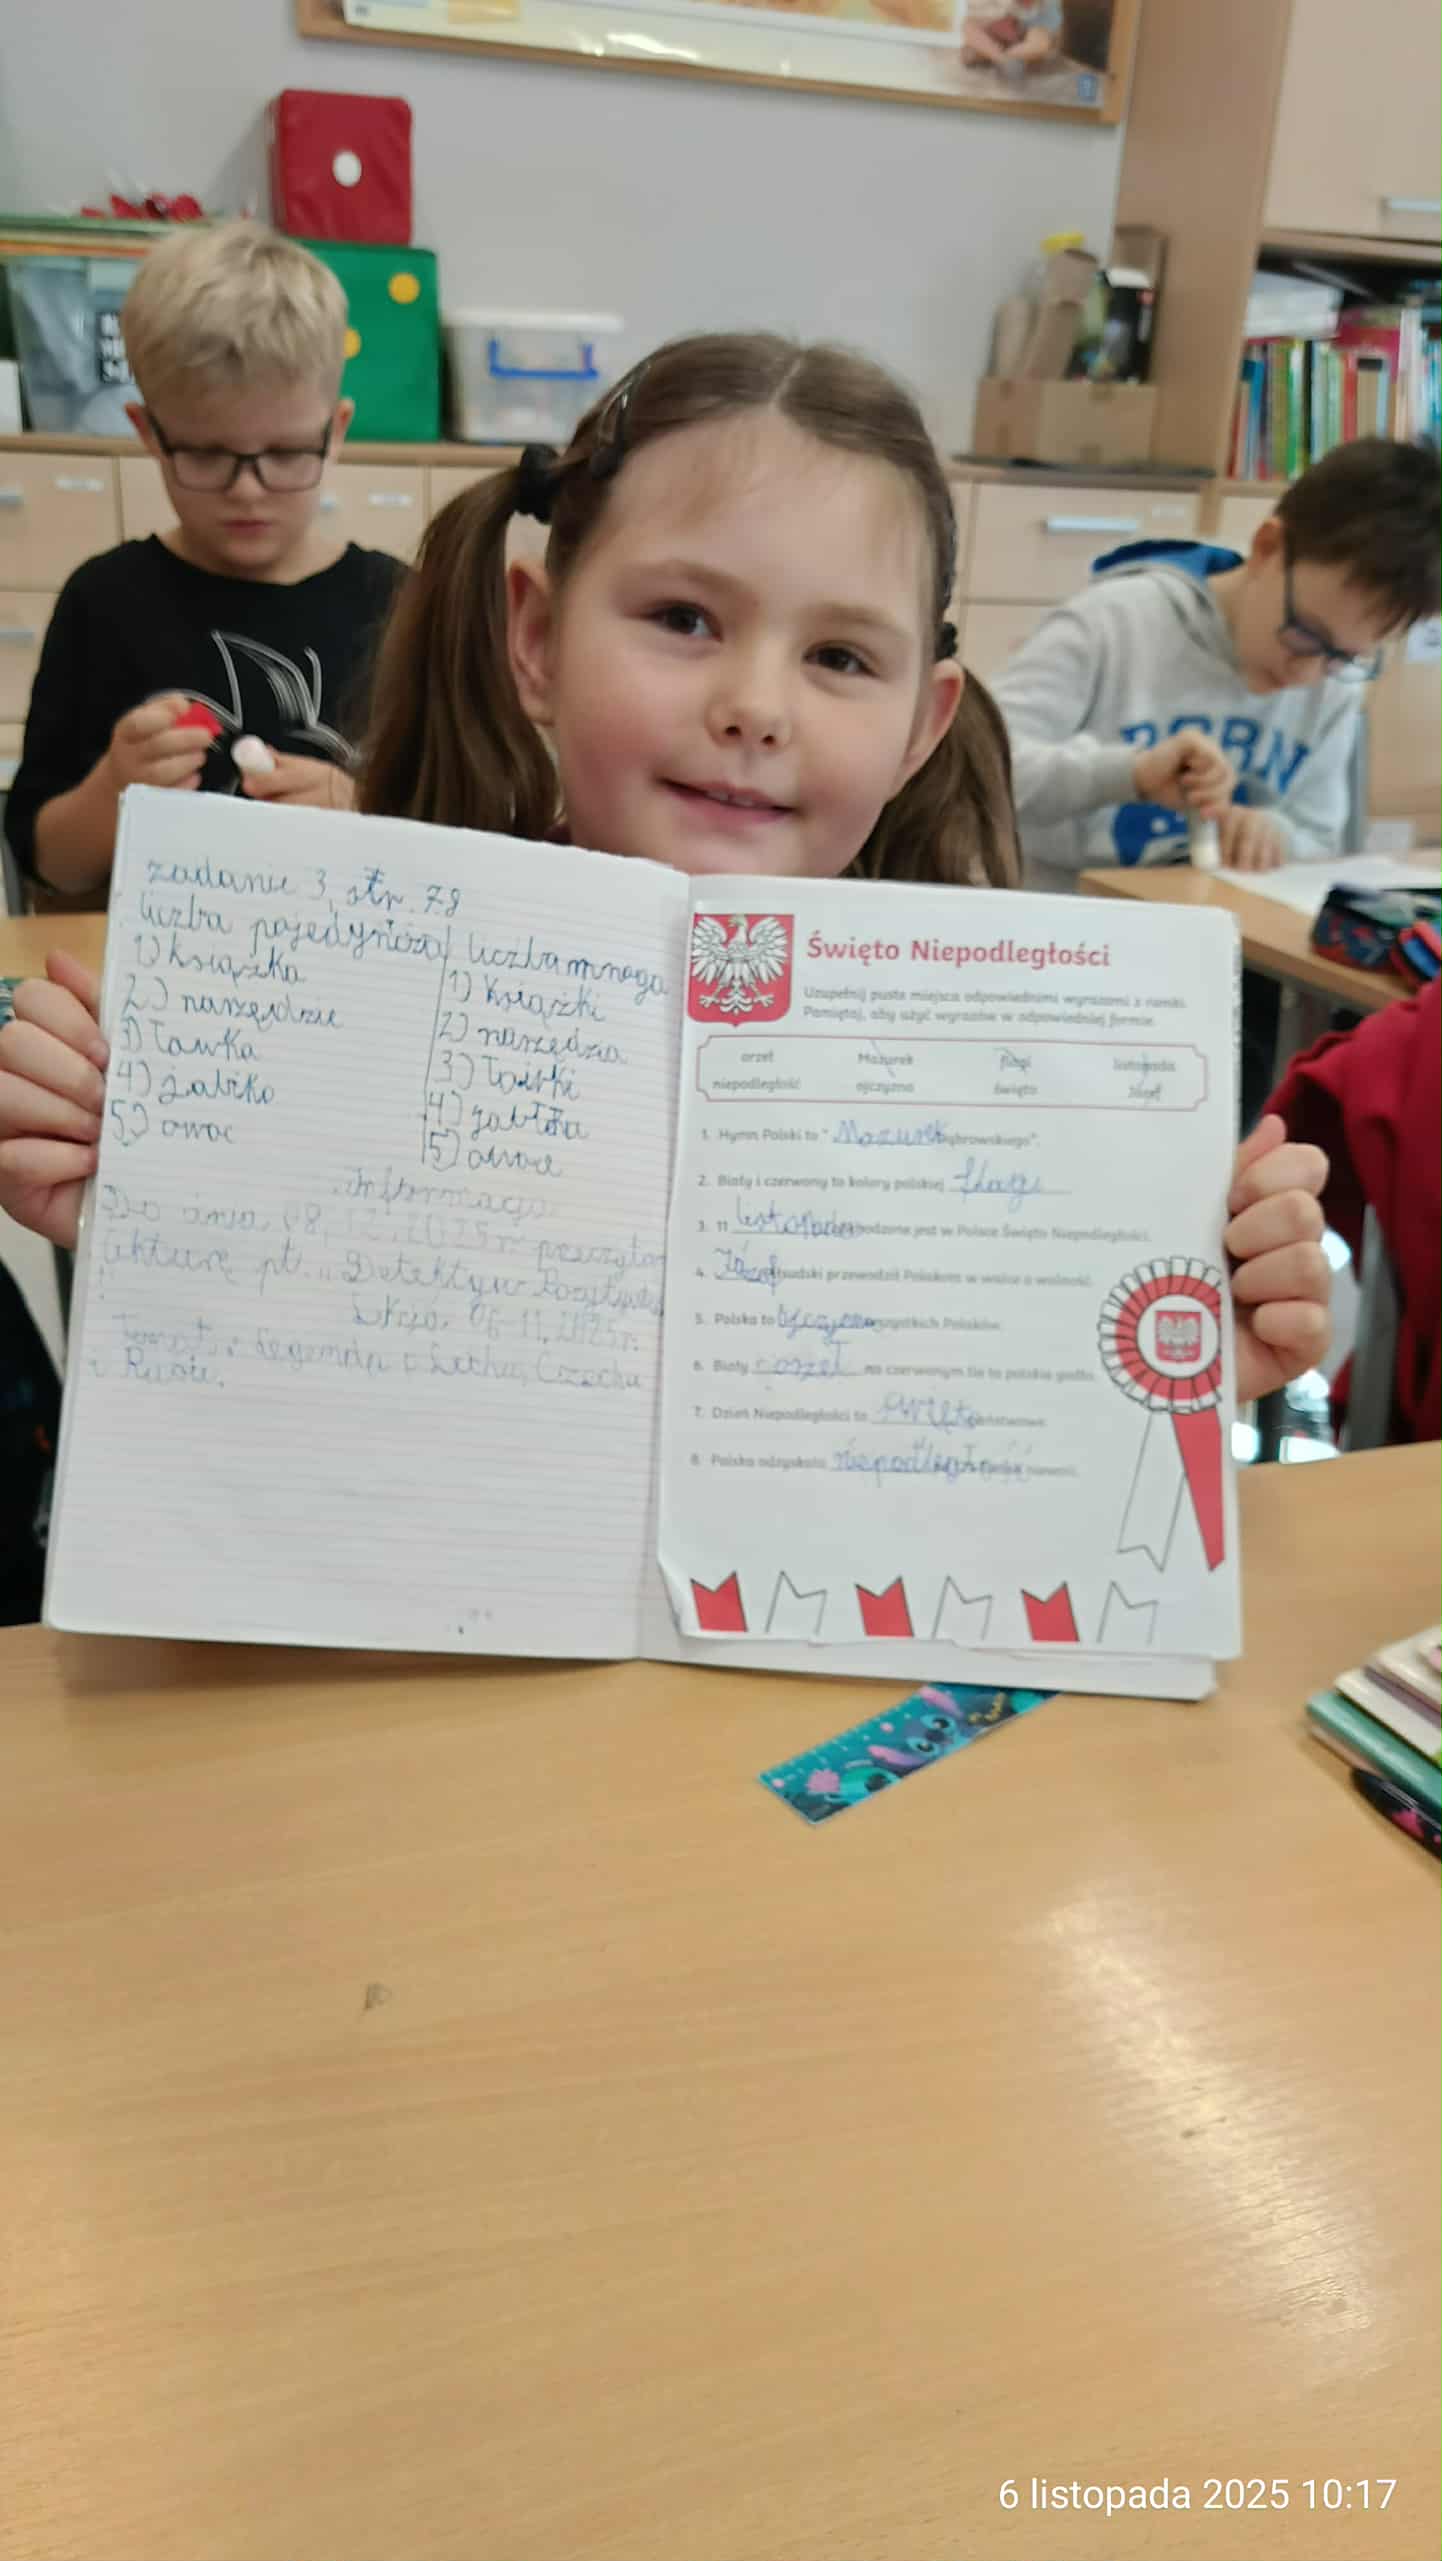 zadanie 3, str. 78
liczba pojedyncza liczba mnoga
1) książka
2) narzędzie
3) ławka
4) jabłko
5) owoc
1) książki
2) narzędzia
3) ławki
4) jabłka
5) owoce
Informacja
Do dnia 08.12.2025 r. przeczytać
lekturę pt. „Detektyw Pozytywka
"
Lekcja. 06.11.2025r.
Temat: Legenda o Lechu, Czechu
i Rusie.
Święto Niepodległości
Uzupełnij puste miejsca odpowiednimi wyrazami z ramki.
Pamiętaj, aby użyć wyrazów w odpowiedniej formie.
orzeł Mazurek flagi listopada
niepodległość ojczyzna święto Józef
1. Hymn Polski to "Mazurek Dąbrowskiego".
2. Biały i czerwony to kolory polskiej flagi
3. 11 listopada obchodzone jest w Polsce Święto Niepodległości.
4. Józef Piłsudski przewodził Polakom w walce o wolność.
5. Polska to Ojczyzna wszystkich Polaków.
6. Biały orzeł na czerwonym tle to polskie godło.
7. Dzień Niepodległości to święto państwowe.
8. Polska odzyskała niepodległość niewoli.
BORN
6 listopada 2025 10:17